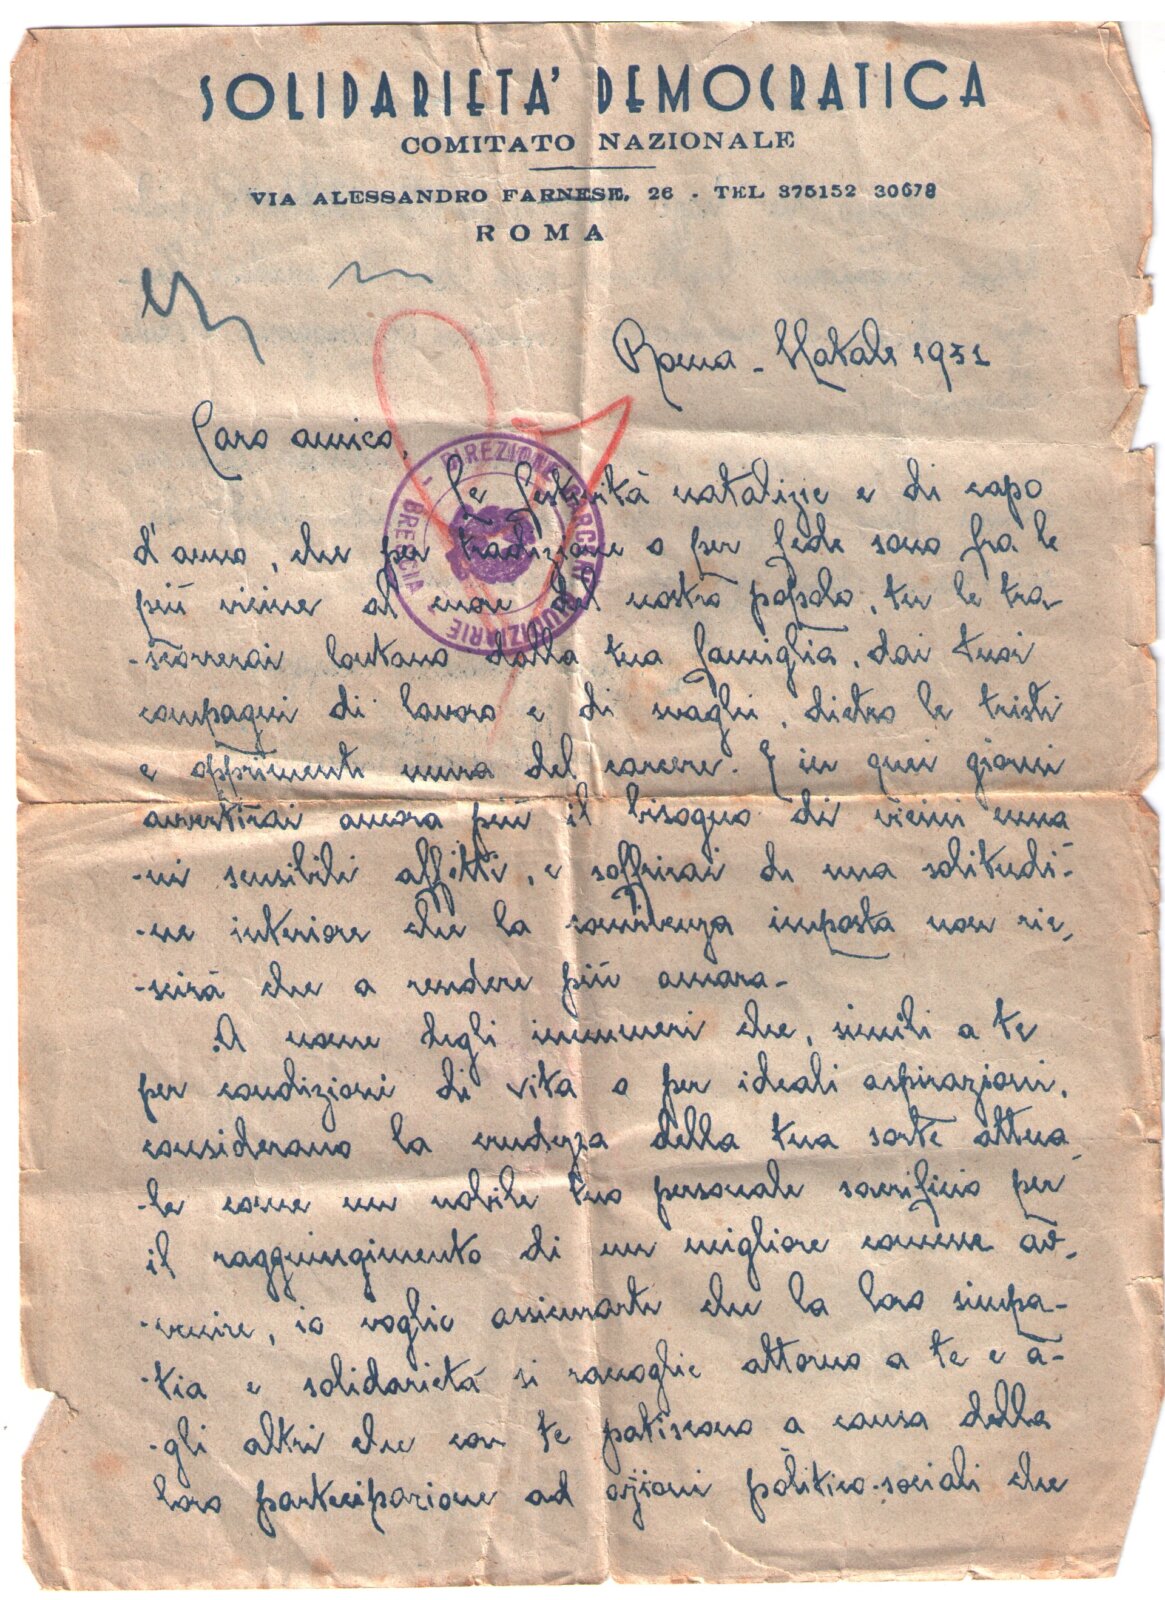 SOLIDARIETA' DEMOCRATICA
COMITATO NAZIONALE
VIA ALESSANDRO FARNESE, 26 - TEL 375152 30678
ROMA
Roma - Natale 1951
Caro amico,
Le festività natalizie e di capo
d'anno, che per tradizione o per fede sono fra le
più vicine al cuore del nostro popolo, tu le tra-
-scorrerai lontano dalla tua famiglia, dai tuoi
compagni di lavoro e di svaghi, dietro le tristi
e opprimenti mura del carcere. E in quei giorni
avvertirai ancora più il bisogno di vicini uma-
-ni sensibili affetti, e soffrirai di una solitudi-
-ne interiore che la convivenza imposta non riu-
-scirà che a rendere più amara-
A nome degli innumeri che, simili a te
per condizioni di vita o per ideali aspirazioni,
considerano la crudezza della tua sorte attua-
-le come un nobile tuo personale sacrificio per
il raggiungimento di un migliore comune av-
-venire, io voglio assicurarti che la loro simpa-
-tia e solidarietà si raccoglie attorno a te e a-
-gli altri che con te patiscono a causa della
loro partecipazione ad azioni politico-sociali che
DIREZIONE CARCERI GIUDIZIARIE - BRESCIA -